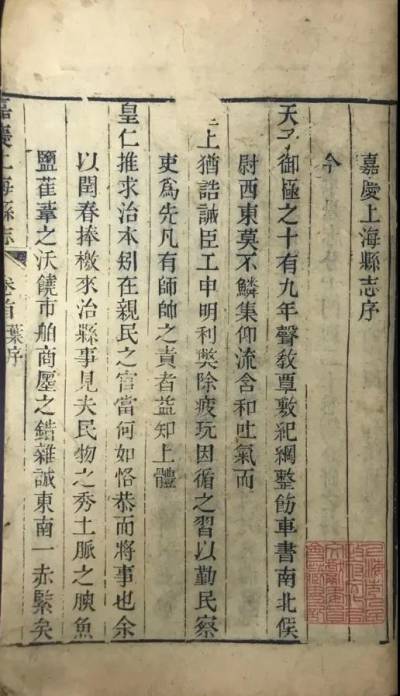 嘉慶上海縣志序
今
天子御極之十有九年聲敎覃敷紀綱整飭車書南北候
尉西東莫不鱗集仰流含和吐氣而
上猶誥誡臣工申明利獘除疲玩因循之習以勤民察
吏爲先凡有師帥之責者益知上體
皇仁推求治本矧在親民之官當何如恪恭而將事也余
以閏春捧檄來治縣事見夫民物之秀土脈之腴魚
鹽萑葦之沃饒市舶商廛之錯雜誠東南一赤緊矣
嘉慶上海縣志 卷首葉序